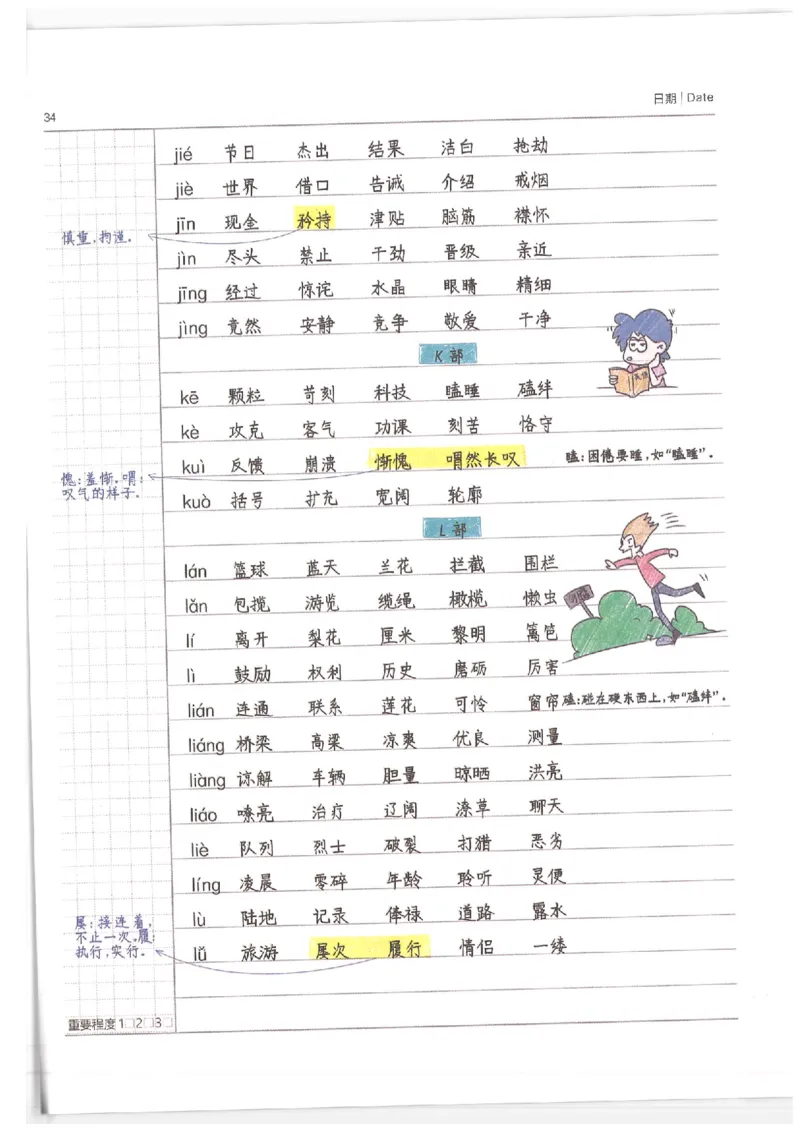 日期 | Date
34
jié 节日 杰出 结果 洁白 抢劫
jiè 世界 借口 告诫 介绍 戒烟
jīn 现金 矜持 津贴 脑筋 襟怀
慎重，拘谨。
jìn 尽头 禁止 干劲 晋级 亲近
jīng 经过 惊诧 水晶 眼睛 精细
jìng 竟然 安静 竞争 敬爱 干净
K 部
kē 颗粒 苛刻 科技 瞌睡 磕绊
kè 攻克 客气 功课 刻苦 恪守
kuì 反馈 崩溃 惭愧 喟然长叹
瞌：困倦要睡，如“瞌睡”。
愧：羞惭。喟：
叹气的样子。
kuò 括号 扩充 宽阔 轮廓
L 部
lán 篮球 蓝天 兰花 拦截 围栏
lǎn 包揽 游览 缆绳 橄榄 懒虫
lí 离开 梨花 厘米 黎明 篱笆
lì 鼓励 权利 历史 磨砺 厉害
lián 连通 联系 莲花 可怜 窗帘
磕：碰在硬东西上，如“磕绊”。
liáng 桥梁 高粱 凉爽 优良 测量
liàng 谅解 车辆 胆量 晾晒 洪亮
liáo 嘹亮 治疗 辽阔 潦草 聊天
liè 队列 烈士 破裂 打猎 恶劣
líng 凌晨 零碎 年龄 聆听 灵便
lù 陆地 记录 俸禄 道路 露水
屡：接连着，
不止一次。履：
执行，实行。
lǚ 旅游 屡次 履行 情侣 一缕
重要程度 1□2□3□